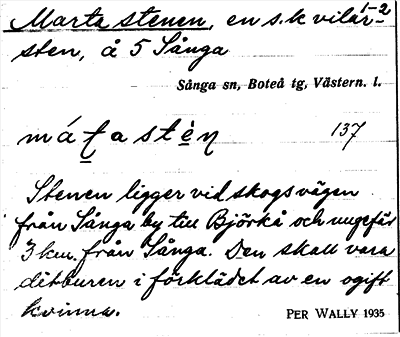 Marta stenen, en s.k vilar- 1-2
sten, å 5 Sånga
Sånga sn, Boteå tg, Västern. l.
máṭa stèṇ 137
Stenen ligger vid skogsvägen
från Sånga by till Björkå och ungefär
3 km. från Sånga. Den skall vara
ditburen i förklädet av en ogift
kvinna. PER WALLY 1935